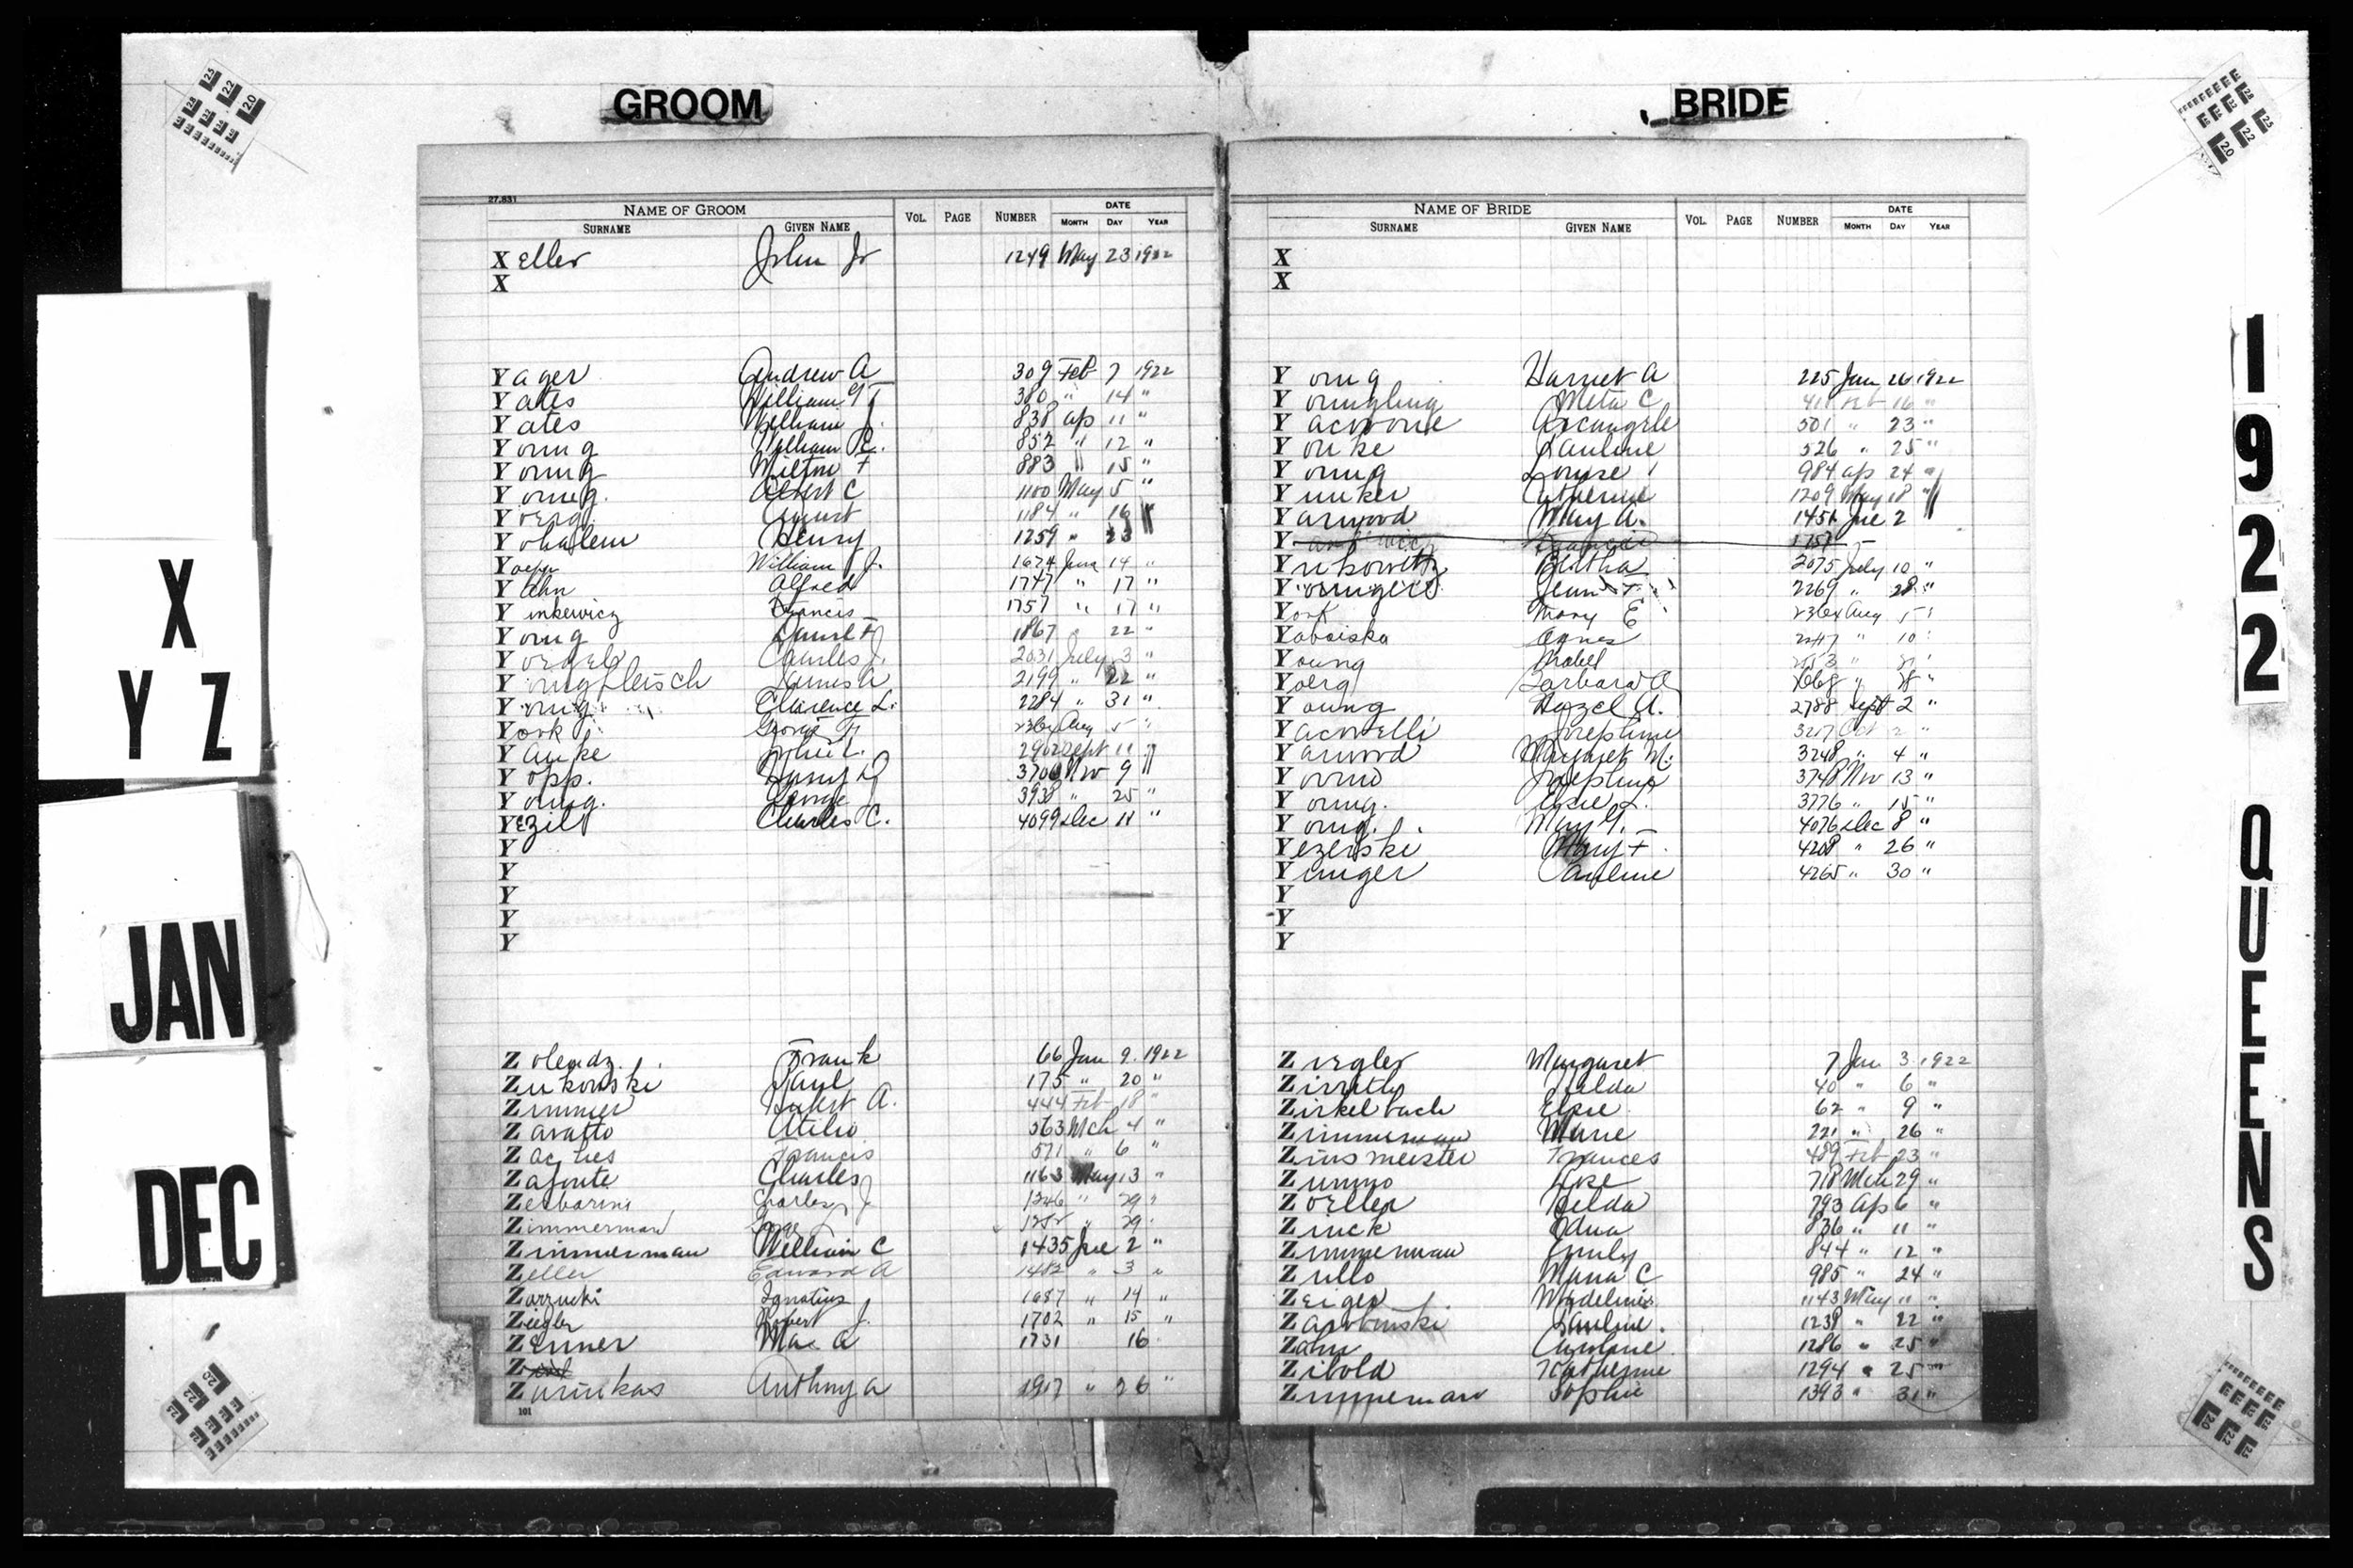 GROOM
27.831
NAME OF GROOM VOL. PAGE NUMBER DATE
SURNAME GIVEN NAME MONTH DAY YEAR
X eller John Jr 1249 May 23 1922
X
Y ager Andrew A 309 Feb 7 1922
Y ates William 380 " 14 "
Y ates William J. 838 Ap 11 "
Y oung William C. 852 " 12 "
Y oung Milton F 883 " 15 "
Y oung. Albert C 1100 May 5 "
Y oerg August 1184 " 16 "
Y Henry 1259 " 23 "
Y oepp William J. 1674 June 14 "
Y ahn Alfred 1747 " 17 "
Y ankewicz Francis 1757 " 17 "
Y oung Daniel F 1867 " 22 "
Y Charles J. 2031 July 3 "
Y oungfleisch James A 2199 " 22 "
Y oung Clarence L. 2284 " 31 "
Y ork George F 2364 Aug 5 "
Y anke John L. 2902 Sept 11 "
Y opp. Harry D 3706 Nov 9 "
Y oung. George 3938 " 25 "
Y ezil Charles C. 4099 Dec 11 "
Y
Y
Y
Y
Y
Z olendz. Frank 66 Jan 9. 1922
Z ukowski Paul 175 " 20 "
Z immer Hubert A. 444 Feb 18 "
Z avatto Atilio 563 Mch 4 "
Z Francis 571 " 6 "
Z afonte Charles 1163 May 13 "
Z erbarini Charles J 1346 " 29 "
Z immerman George " 29 "
Z immerman William C 1435 Jue 2 "
Z eller Edward A 1482 " 3 "
Z arzucki Ignatius 1687 " 14 "
Z iegler Robert J. 1702 " 15 "
Z enner Max A 1731 16
Z
Z urinskas Anthony A 1917 " 26 "
101
BRIDE
NAME OF BRIDE VOL. PAGE NUMBER DATE
SURNAME GIVEN NAME MONTH DAY YEAR
X
X
Y oung Harriet A 225 Jan 26 1922
Y oungling Meta C 411 Feb 16 "
Y acovone Arcangele 501 " 23 "
Y ouke Pauline 526 " 25 "
Y oung Louise 984 Ap 24 "
Y unker Catherine 1209 May 18 "
Y arwood May A. 1451 Jue 2 "
Y ankewicz Francis 1757
Y ukowitz Bertha 2075 July 10 "
Y oungers Jean 2269 " 28 "
Y ork Mary E 2364 Aug 5 "
Y aboiska Agnes 2447 " 10 "
Y oung Mabel "
Y oerg Barbara A "
Y oung Hazel A. 2788 Sept 2 "
Y acovelli Josephine Oct 2 "
Y arwood Margaret M. 3248 " 4 "
Y ovino Josephine 3748 Nov 13 "
Y oung. Elsie L. 3776 " 15 "
Y oung. May G. 4076 Dec 8 "
Y ezerski Mary F. 4208 " 26 "
Y unger Pauline 4265 " 30 "
Y
Y
Y
Z iegler Margaret 7 Jan 3 1922
Z Hilda 40 " 6 "
Z irkelbach Elsie 62 " 9 "
Z immerman Marie 221 " 26 "
Z insmeister Frances 489 Feb 23 "
Z ummo 718 Mch 29 "
Z oeller Hilda 793 Ap 6 "
Z inck Edna 836 " 11 "
Z immerman Emily 844 " 12 "
Z ullo Maria C 985 " 24 "
Z eiger Madeline 1143 May 11 "
Z Pauline. 1239 " 22 "
Z ahn Caroline 1286 " 25 "
Z ibold Katherine 1294 " 25 "
Z immerman Sophie 1393 " 31 "
X
Y Z
JAN
DEC
1922 QUEENS